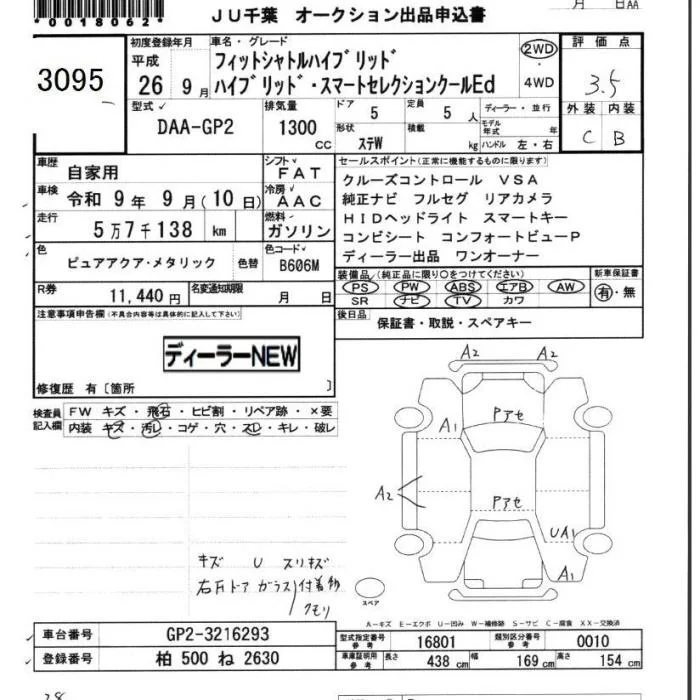 *0018062*
月 日AA
JU千葉 オークション出品申込書
3095
初度登録年月
平成
26 9月
車名・グレード
フィットシャトルハイブリッド
ハイブリッド・スマートセレクションクールEd
2WD
・
4WD
評価点
3.5
外装 内装
C B
型式
DAA-GP2
排気量
1300
cc
ドア 5
定員 5 人
形状 ステW
積載 kg
ディーラー・並行
モデル年式 年
ハンドル 左・右
車歴 自家用
シフト FAT
車検 令和 9年 9月(10日)
冷房 AAC
走行 5万7千138 km
燃料 ガソリン
色 ピュアアクア・メタリック 色替
色コード B606M
R券 11,440円
名変通知期限 月 日
セールスポイント(正常に機能するものに限ります)
クルーズコントロール VSA
純正ナビ フルセグ リアカメラ
HIDヘッドライト スマートキー
コンビシート コンフォートビューP
ディーラー出品 ワンオーナー
装備品(純正品に限り○をつけてください)
新車保証書
PS PW ABS エアB AW
SR ナビ TV カワ
有・無
後日品 保証書・取説・スペアキー
注意事項申告欄(不具合内容等は具体的に記入して下さい)
ディーラーNEW
修復歴 有〔箇所 〕
検査員記入欄
FW キズ・飛石・ヒビ割・リペア跡・×要
内装 キズ・汚レ・コゲ・穴・スレ・キレ・破レ
A2 A2
A1
Pアセ
A2
Pアセ
UA1
A1
キズ U スリキズ
右Fドア ガラス付着物
クモリ
スペア
A-キズ E-エクボ U-凹み W-補修跡 S-サビ C-腐食 XX-交換済
車台番号 GP2-3216293
型式指定番号参考 16801
類別区分番号参考 0010
登録番号 柏 500 ね 2630
車庫証明用参考
長さ 438 cm
幅 169 cm
高さ 154 cm